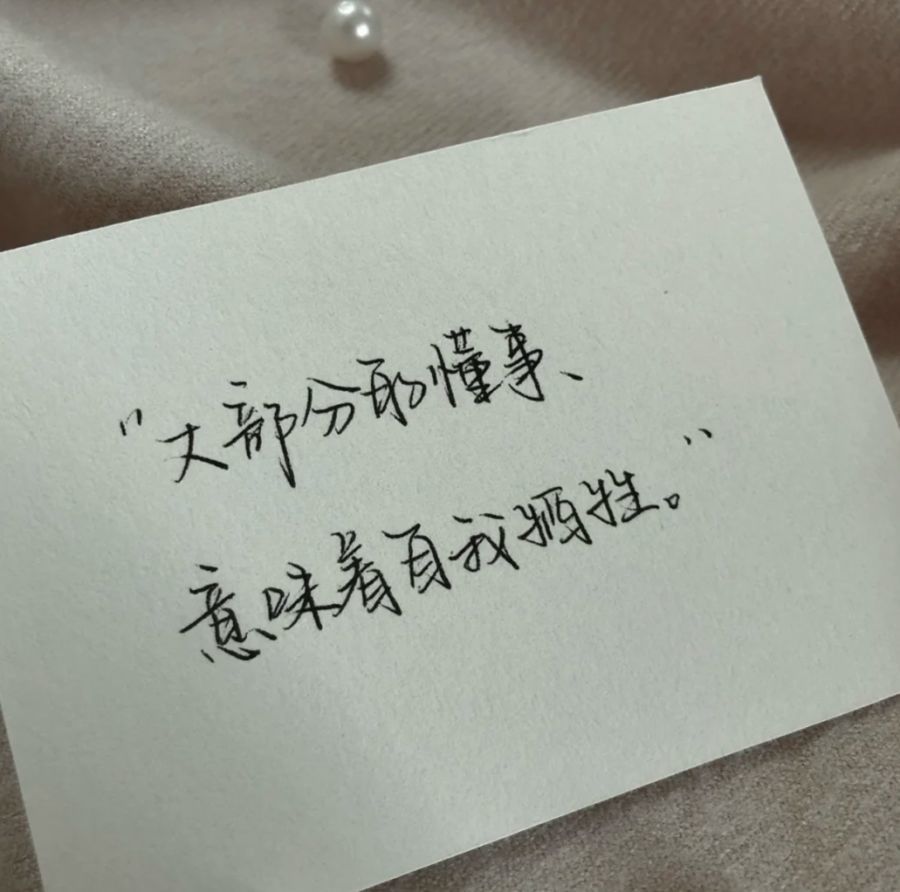 “大部分的懂事、
意味着自我牺牲。”